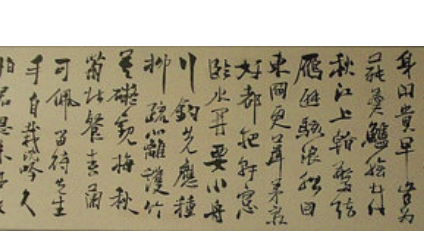 身閒貴早豈為
蓴羹鱸膾哉
秋江上看驚弦
雁避駭浪船回
東岡更葺茅齋
好都把軒窗
臨水開要小舟
行釣先應種
柳疏籬護竹
莫礙觀梅秋
菊堪餐春蘭
可佩留待先生
手自栽吟久
怕君恩未